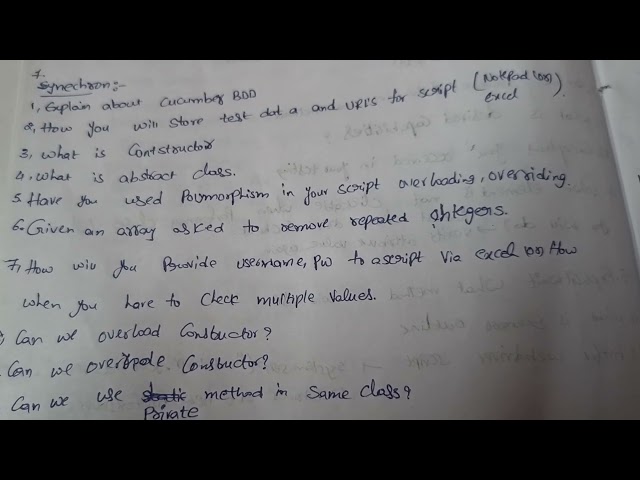 7.
Synechron:-
1, Explain about Cucumber BDD
2, How you will store test data and URL's for script (Notepad (or) excel).
3, what is Constructor
4, what is abstract class.
5. Have you used Polymorphism in your script overloading, overriding.
6. Given an array asked to remove repeated integers.
7, How will you Provide username, pw to a script via excel (or) How
when you have to check multiple values.
Can we overload Constuctor?
Can we Constuctor?
Can we use static method in same class?
Private